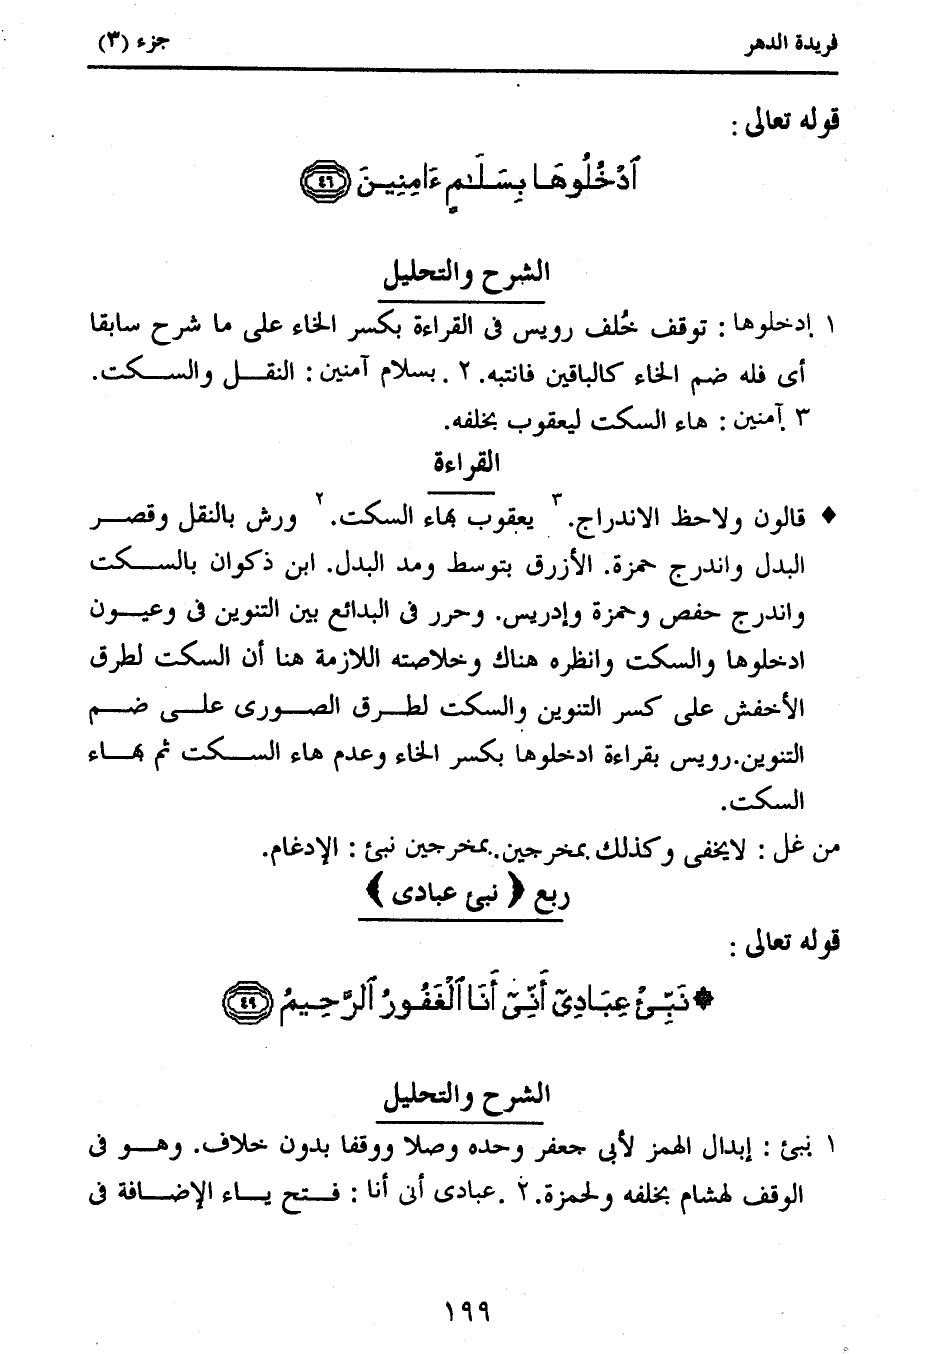 فريدة الدهر جزء (٣)
قوله تعالى :
ٱدْخُلُوهَا بِسَلَٰمٍ ءَامِنِينَ ٤٦
الشرح والتحليل
١ إدخلوها : توقف خُلف رويس فى القراءة بكسر الخاء على ما شرح سابقا
أى فله ضم الخاء كالباقين فانتبه. ٢ . بسلام آمنين : النقل والسكت.
٣ آمنين : هاء السكت ليعقوب بخلفه.
القراءة
♦ قالون ولاحظ الاندراج. ٣ يعقوب بهاء السكت. ٢ ورش بالنقل وقصر
البدل واندرج حمزة. الأزرق بتوسط ومد البدل. ابن ذكوان بالسكت
واندرج حفص وحمزة وإدريس. وحرر فى البدائع بين التنوين فى وعيون
ادخلوها والسكت وانظره هناك وخلاصته اللازمة هنا أن السكت لطرق
الأخفش على كسر التنوين والسكت لطرق الصورى على ضم
التنوين.رويس بقراءة ادخلوها بكسر الخاء وعدم هاء السكت ثم بهاء
السكت.
من غل : لايخفى وكذلك بمخرجين..بمخرجين نبئ : الإدغام.
ربع ﴿ نبئ عبادى ﴾
قوله تعالى :
۞ نَبِّئْ عِبَادِىٓ أَنِّىٓ أَنَا ٱلْغَفُورُ ٱلرَّحِيمُ ٤٩
الشرح والتحليل
١ نبئ : إبدال الهمز لأبى جعفر وحده وصلا ووقفا بدون خلاف. وهو فى
الوقف لهشام بخلفه ولحمزة. ٢ .عبادى أنى أنا : فتح ياء الإضافة فى
١٩٩